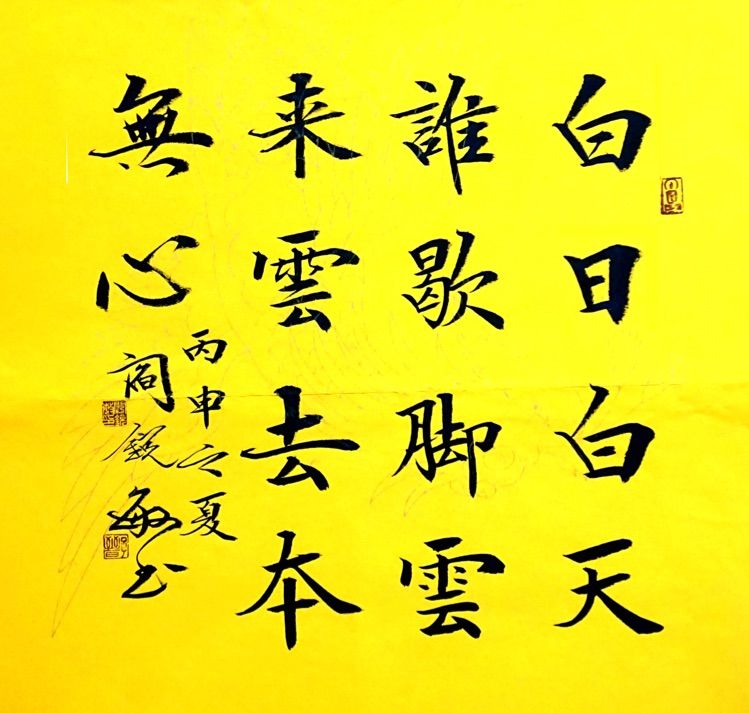 白日白天
誰歇脚雲
来雲去本
無心
丙申之夏
阎 敏书